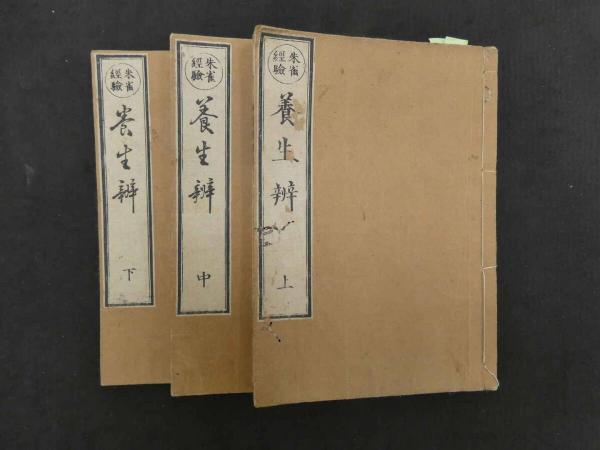 朱雀
經驗
養生辨
上
朱雀
經驗
養生辨
中
朱雀
經驗
養生辨
下